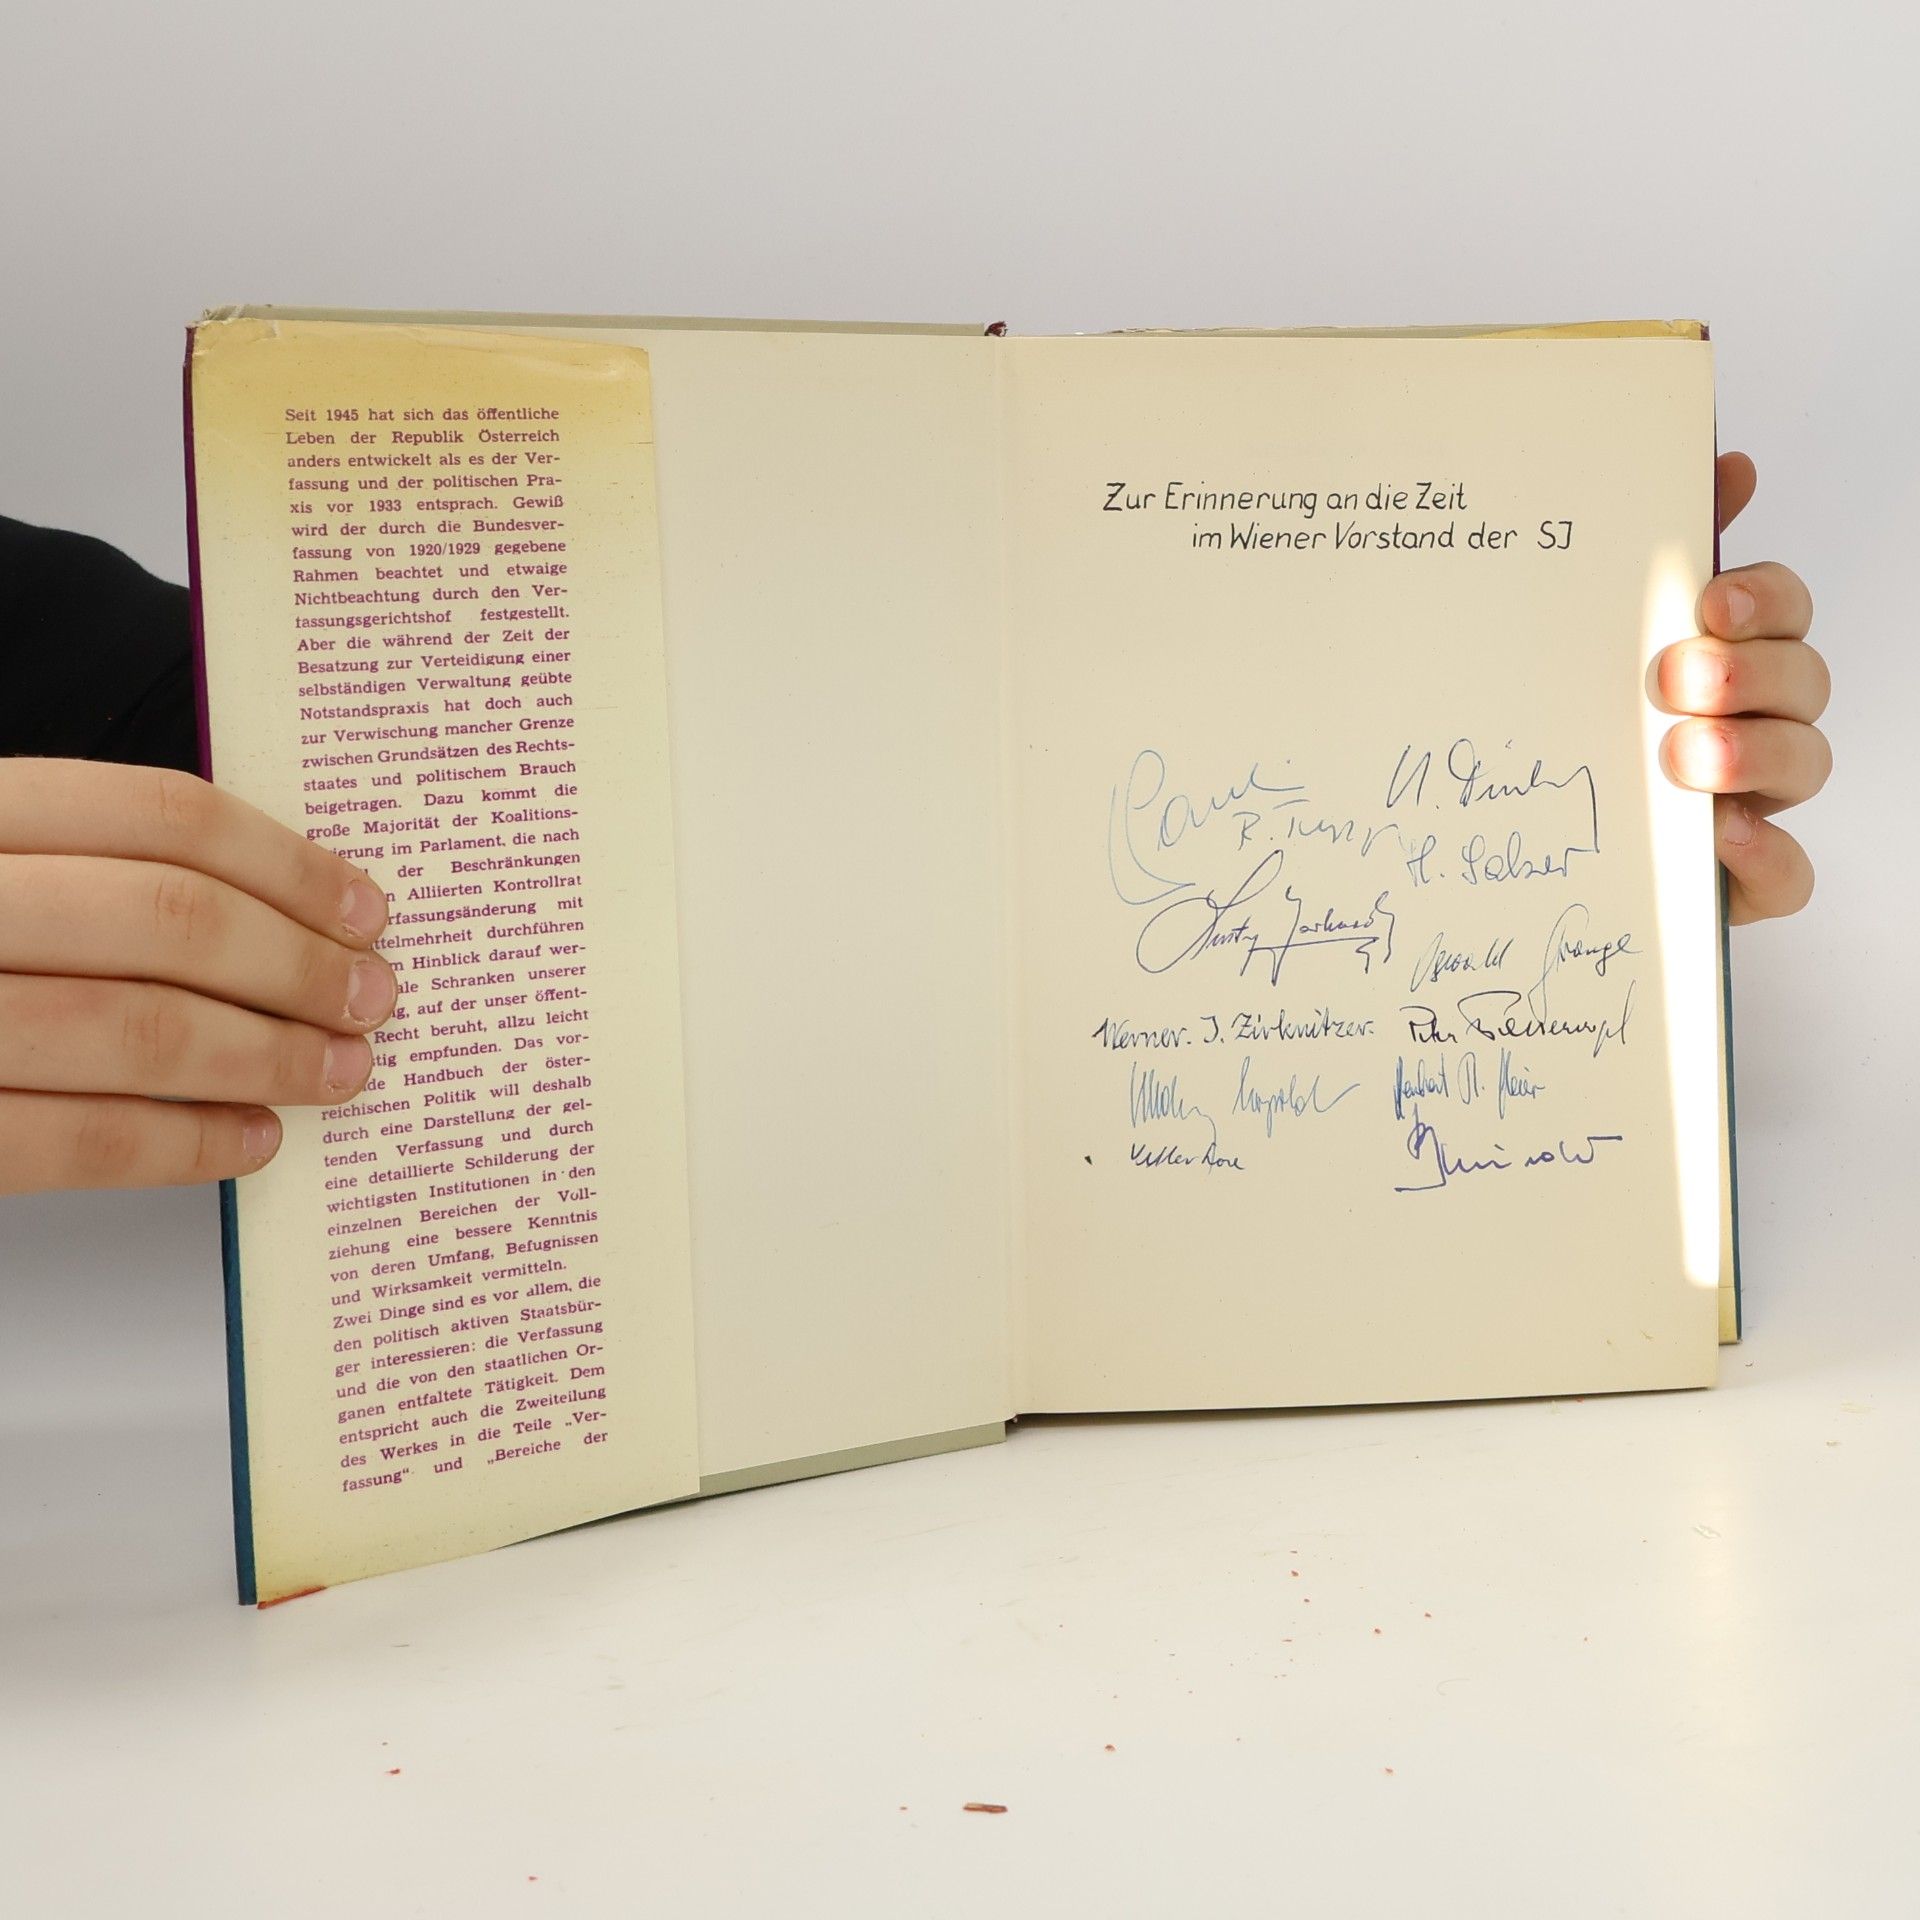 Seit 1945 hat sich das öffentliche
Leben der Republik Österreich
anders entwickelt als es der Ver-
fassung und der politischen Pra-
xis vor 1933 entsprach. Gewiß
wird der durch die Bundesver-
fassung von 1920/1929 gegebene
Rahmen beachtet und etwaige
Nichtbeachtung durch den Ver-
fassungsgerichtshof festgestellt.
Aber die während der Zeit der
Besatzung zur Verteidigung einer
selbständigen Verwaltung geübte
Notstandspraxis hat doch auch
zur Verwischung mancher Grenze
zwischen Grundsätzen des Rechts-
staates und politischem Brauch
beigetragen. Dazu kommt die
große Majorität der Koalitions-
ierung im Parlament, die nach
der Beschränkungen
n Alliierten Kontrollrat
rfassungsänderung mit
ttelmehrheit durchführen
m Hinblick darauf wer-
ale Schranken unserer
ig, auf der unser öffent-
Recht beruht, allzu leicht
tig empfunden. Das vor-
de Handbuch der öster-
reichischen Politik will deshalb
durch eine Darstellung der gel-
tenden Verfassung und durch
eine detaillierte Schilderung der
wichtigsten Institutionen in den
einzelnen Bereichen der Voll-
ziehung eine bessere Kenntnis
von deren Umfang, Befugnissen
und Wirksamkeit vermitteln.
Zwei Dinge sind es vor allem, die
den politisch aktiven Staatsbür-
ger interessieren: die Verfassung
und die von den staatlichen Or-
ganen entfaltete Tätigkeit. Dem
entspricht auch die Zweiteilung
des Werkes in die Teile „Ver-
fassung“ und „Bereiche der
Zur Erinnerung an die Zeit
im Wiener Vorstand der SJ
H. Salzer
Werner J. Zirknitzer